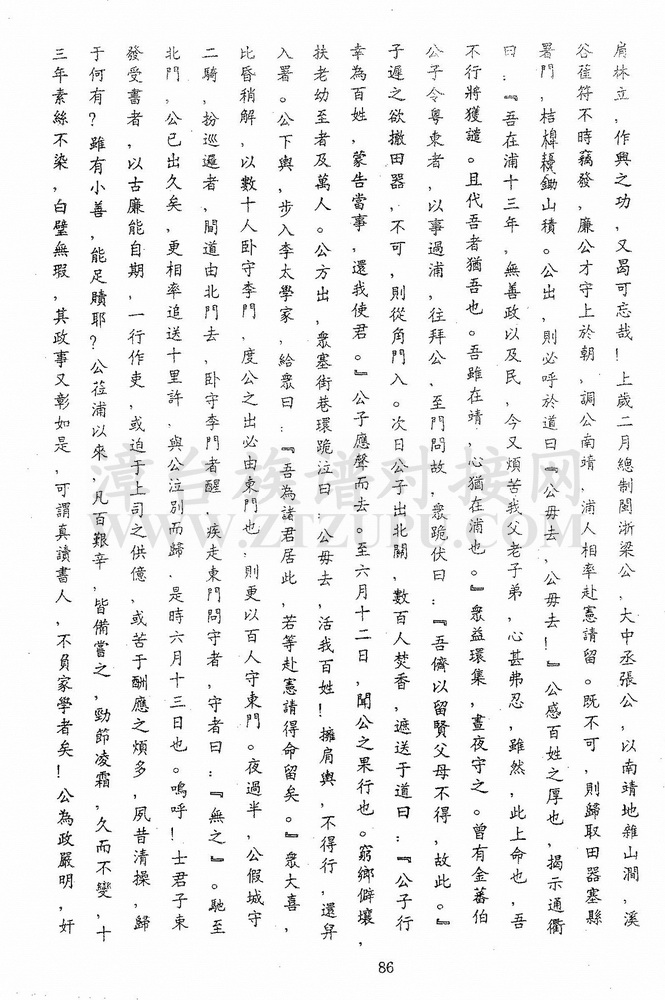 肩林立，作興之功，又曷可忘哉！上歲二月總制閩浙梁公，大中丞張公，以南靖地雜山澗，溪
谷萑符不時竊發，廉公才守上於朝，調公南靖，浦人相率赴憲請留。既不可，則歸取田器塞縣
署門，桔槔耰鋤山積。公出，則必呼於道曰『公毋去，公毋去！』公感百姓之厚也，揭示通衢
曰：『吾在浦十三年，無善政以及民，今又煩苦我父老子弟，心甚弗忍，雖然，此上命也，吾
不行將獲譴。且代吾者猶吾也。吾雖在靖，心猶在浦也。』眾益環集，晝夜守之。曾有金蕃伯
公子令粵東者，以事過浦，往拜公，至門問故，眾跪伏曰：『吾儕以留賢父母不得，故此。』
子遲之欲撤田器，不可，則從角門入。次日公子出北關，數百人焚香，遮送于道曰：『公子行
幸為百姓，蒙告當事，還我使君。』公子應聲而去。至六月十二日，聞公之果行也。窮鄉僻壤，
扶老幼至者及萬人。公方出，眾塞街巷環跪泣曰：公毋去，活我百姓！擁肩輿，不得行，還舁
入署。公下輿，步入李太學家，給眾曰：『吾為諸君居此，若等赴憲請得命留矣。』眾大喜，
比昏稍解，以數十人卧守李門，度公之出必由東門也，則更以百人守東門。夜過半，公假城守
二騎，扮巡邏者，間道由北門去，卧守李門者醒，疾走東門問守者，守者曰：『無之』。馳至
北門，公已出久矣，更相率追送十里許，與公泣別而歸．是時六月十三日也。嗚呼！士君子束
發受書者，以古廉能自期，一行作吏，或迫于上司之供億，或苦于酬應之煩多，夙昔清操，歸
于何有？雖有小善，能足贖耶？公莅浦以來，凡百艱辛，皆備嘗之，勁節凌霜，久而不變，十
三年素絲不染，白璧無瑕，其政事又彰如是，可謂真讀書人，不負家學者矣！公為政嚴明，奸
86
漳台族谱对接网
WWW.ZTZUPU.COM